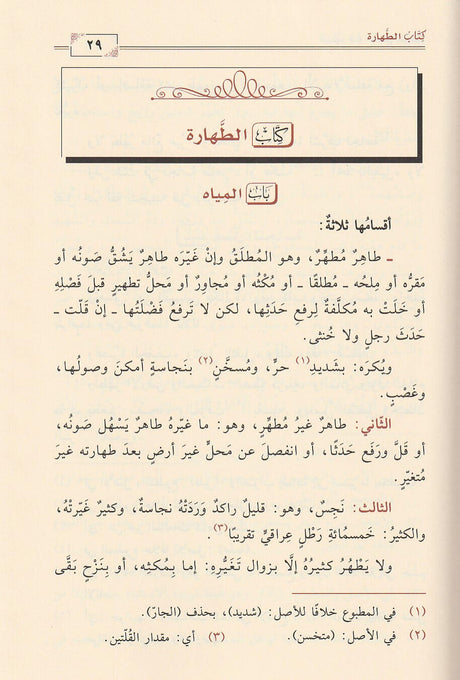 كِتَابُ الطَّهارة
٢٩
كِتَابُ الطَّهارة
بَابُ المِياه
أقسامُها ثلاثةٌ:
ـ طاهِرٌ مُطهِّرٌ، وهو المُطلَقُ وإنْ غَيّره طاهِرٌ يَشُقُّ صَونُه أو
مَقرُّه أو مِلحُه ـ مُطلقًا ـ أو مُكثُه أو مُجاوِرٌ أو مَحلُّ تطهيرٍ قبلَ فَصْلِهِ
أو خَلَتْ به مُكلَّفةٌ لِرفعِ حَدَثِها، لكن لا تَرفعُ فَضْلَتُها ـ إنْ قَلَّت ـ
حَدَثَ رجلٍ ولا خُنثى.
ويُكرَه: بشَديدِ(١) حرٍّ، ومُسخَّنٍ(٢) بنَجاسةٍ أمكنَ وصولُها،
وغَصْبٍ.
الثّاني: طاهرٌ غيرُ مُطهِّرٍ، وهو: ما غيّرهُ طاهرٌ يَسْهُل صَونُه،
أو قَلَّ ورَفَع حَدَثًا، أو انفصلَ عن مَحلٍّ غيرِ أرضٍ بعدَ طهارته غيرَ
مُتغيِّرٍ.
الثالث: نَجِسٌ، وهو: قليلٌ راكدٌ وَرَدَتْهُ نجاسةٌ، وكثيرٌ غَيّرتْهُ،
والكثيرُ: خَمسُمائةِ رَطْلٍ عِراقيٍّ تقريبًا(٣).
ولا يَطْهُرُ كثيرُهُ إلَّا بزوالِ تَغَيُّرِهِ: إما بِمُكثِه، أو بِنَزْحٍ بَقَّى
(١) في المطبوع خلافًا للأصل: (شديد)، بحذف (الجارّ).
(٢) في الأصل: (متخسن). (٣) أي: مقدار القُلّتين.